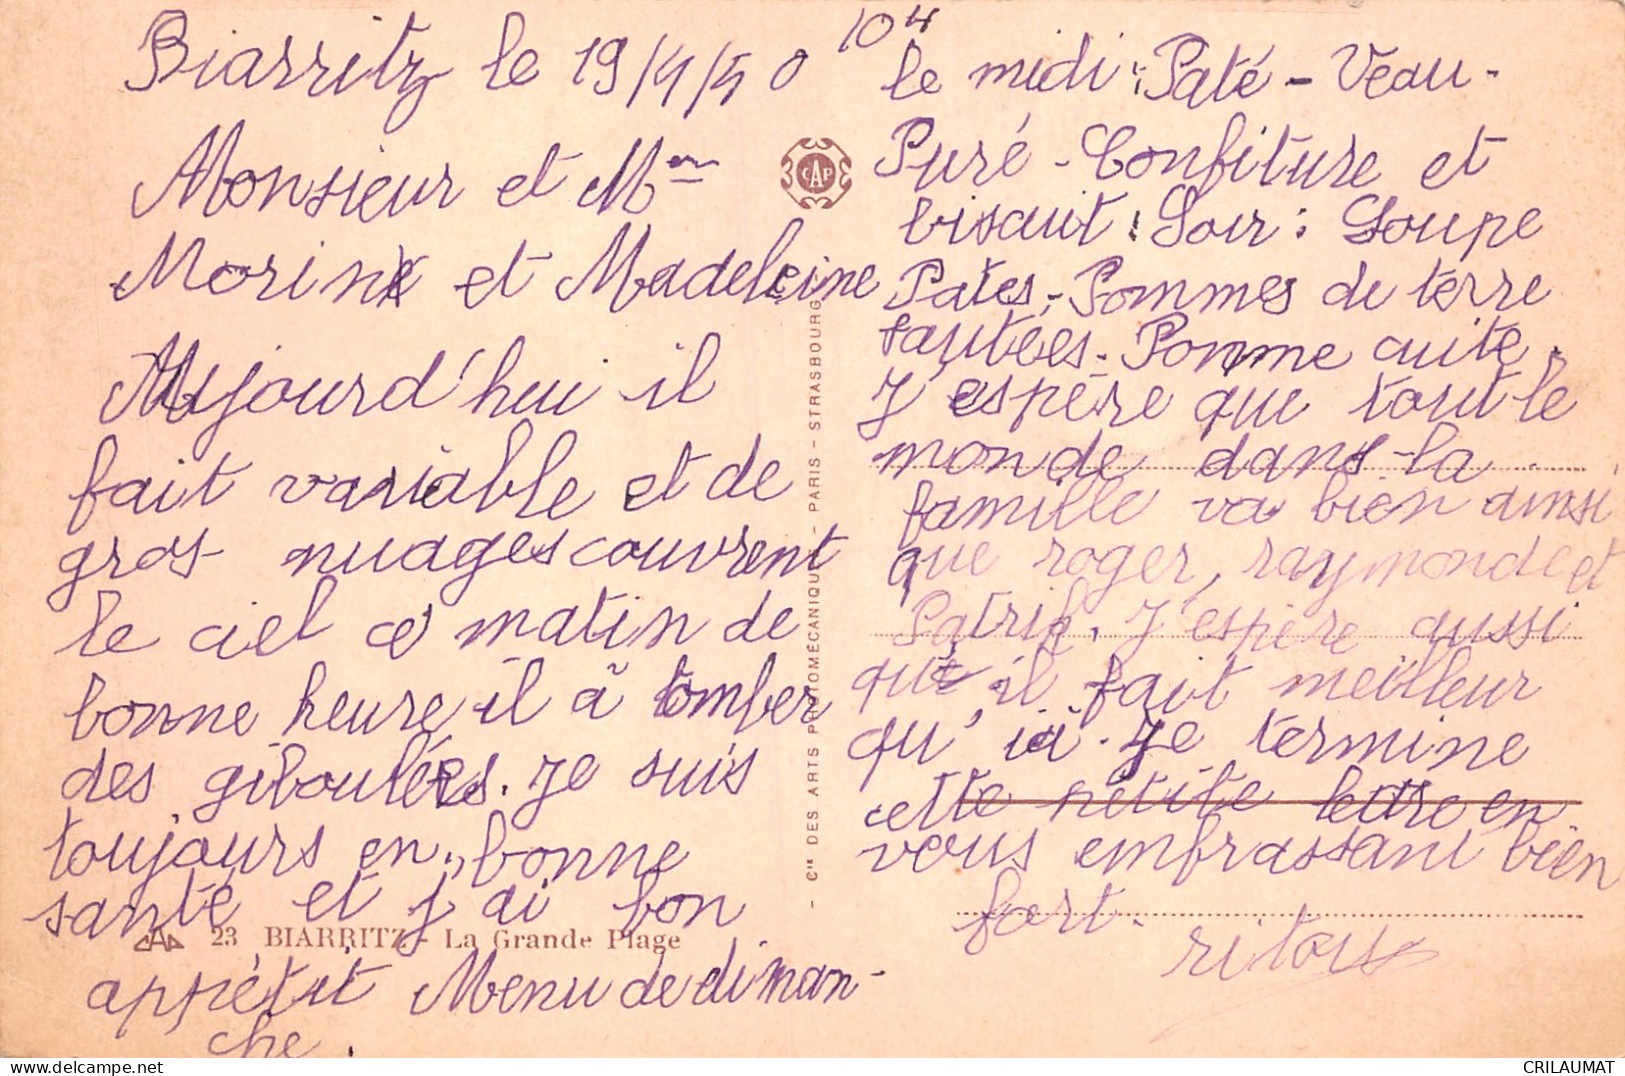 Biarritz le 19/4/50
Monsieur et Mme
Morin et Madeleine
Aujourd'hui il
fait variable et de
gros nuages couvrent
le ciel ce matin de
bonne heure il à tomber
des giboulées. Je suis
toujours en bonne
santé et j'ai bon
appétit Menu de diman-
che.
104
le midi : Paté - Veau -
Puré - Confiture et
biscuit : Soir : Soupe
Pates - Pommes de terre
sautées - Pomme cuite.
J'espère que tout le
monde dans la
famille va bien ainsi
que roger, raymonde et
Patrik. J'espère aussi
qu'il fait meilleur
qu'ici. Je termine
cette petite lettre en
vous embrassant bien
fort.
CAP
Cie DES ARTS PHOTOMÉCANIQUES - PARIS - STRASBOURG
23 BIARRITZ - La Grande Plage
CRILAUMAT